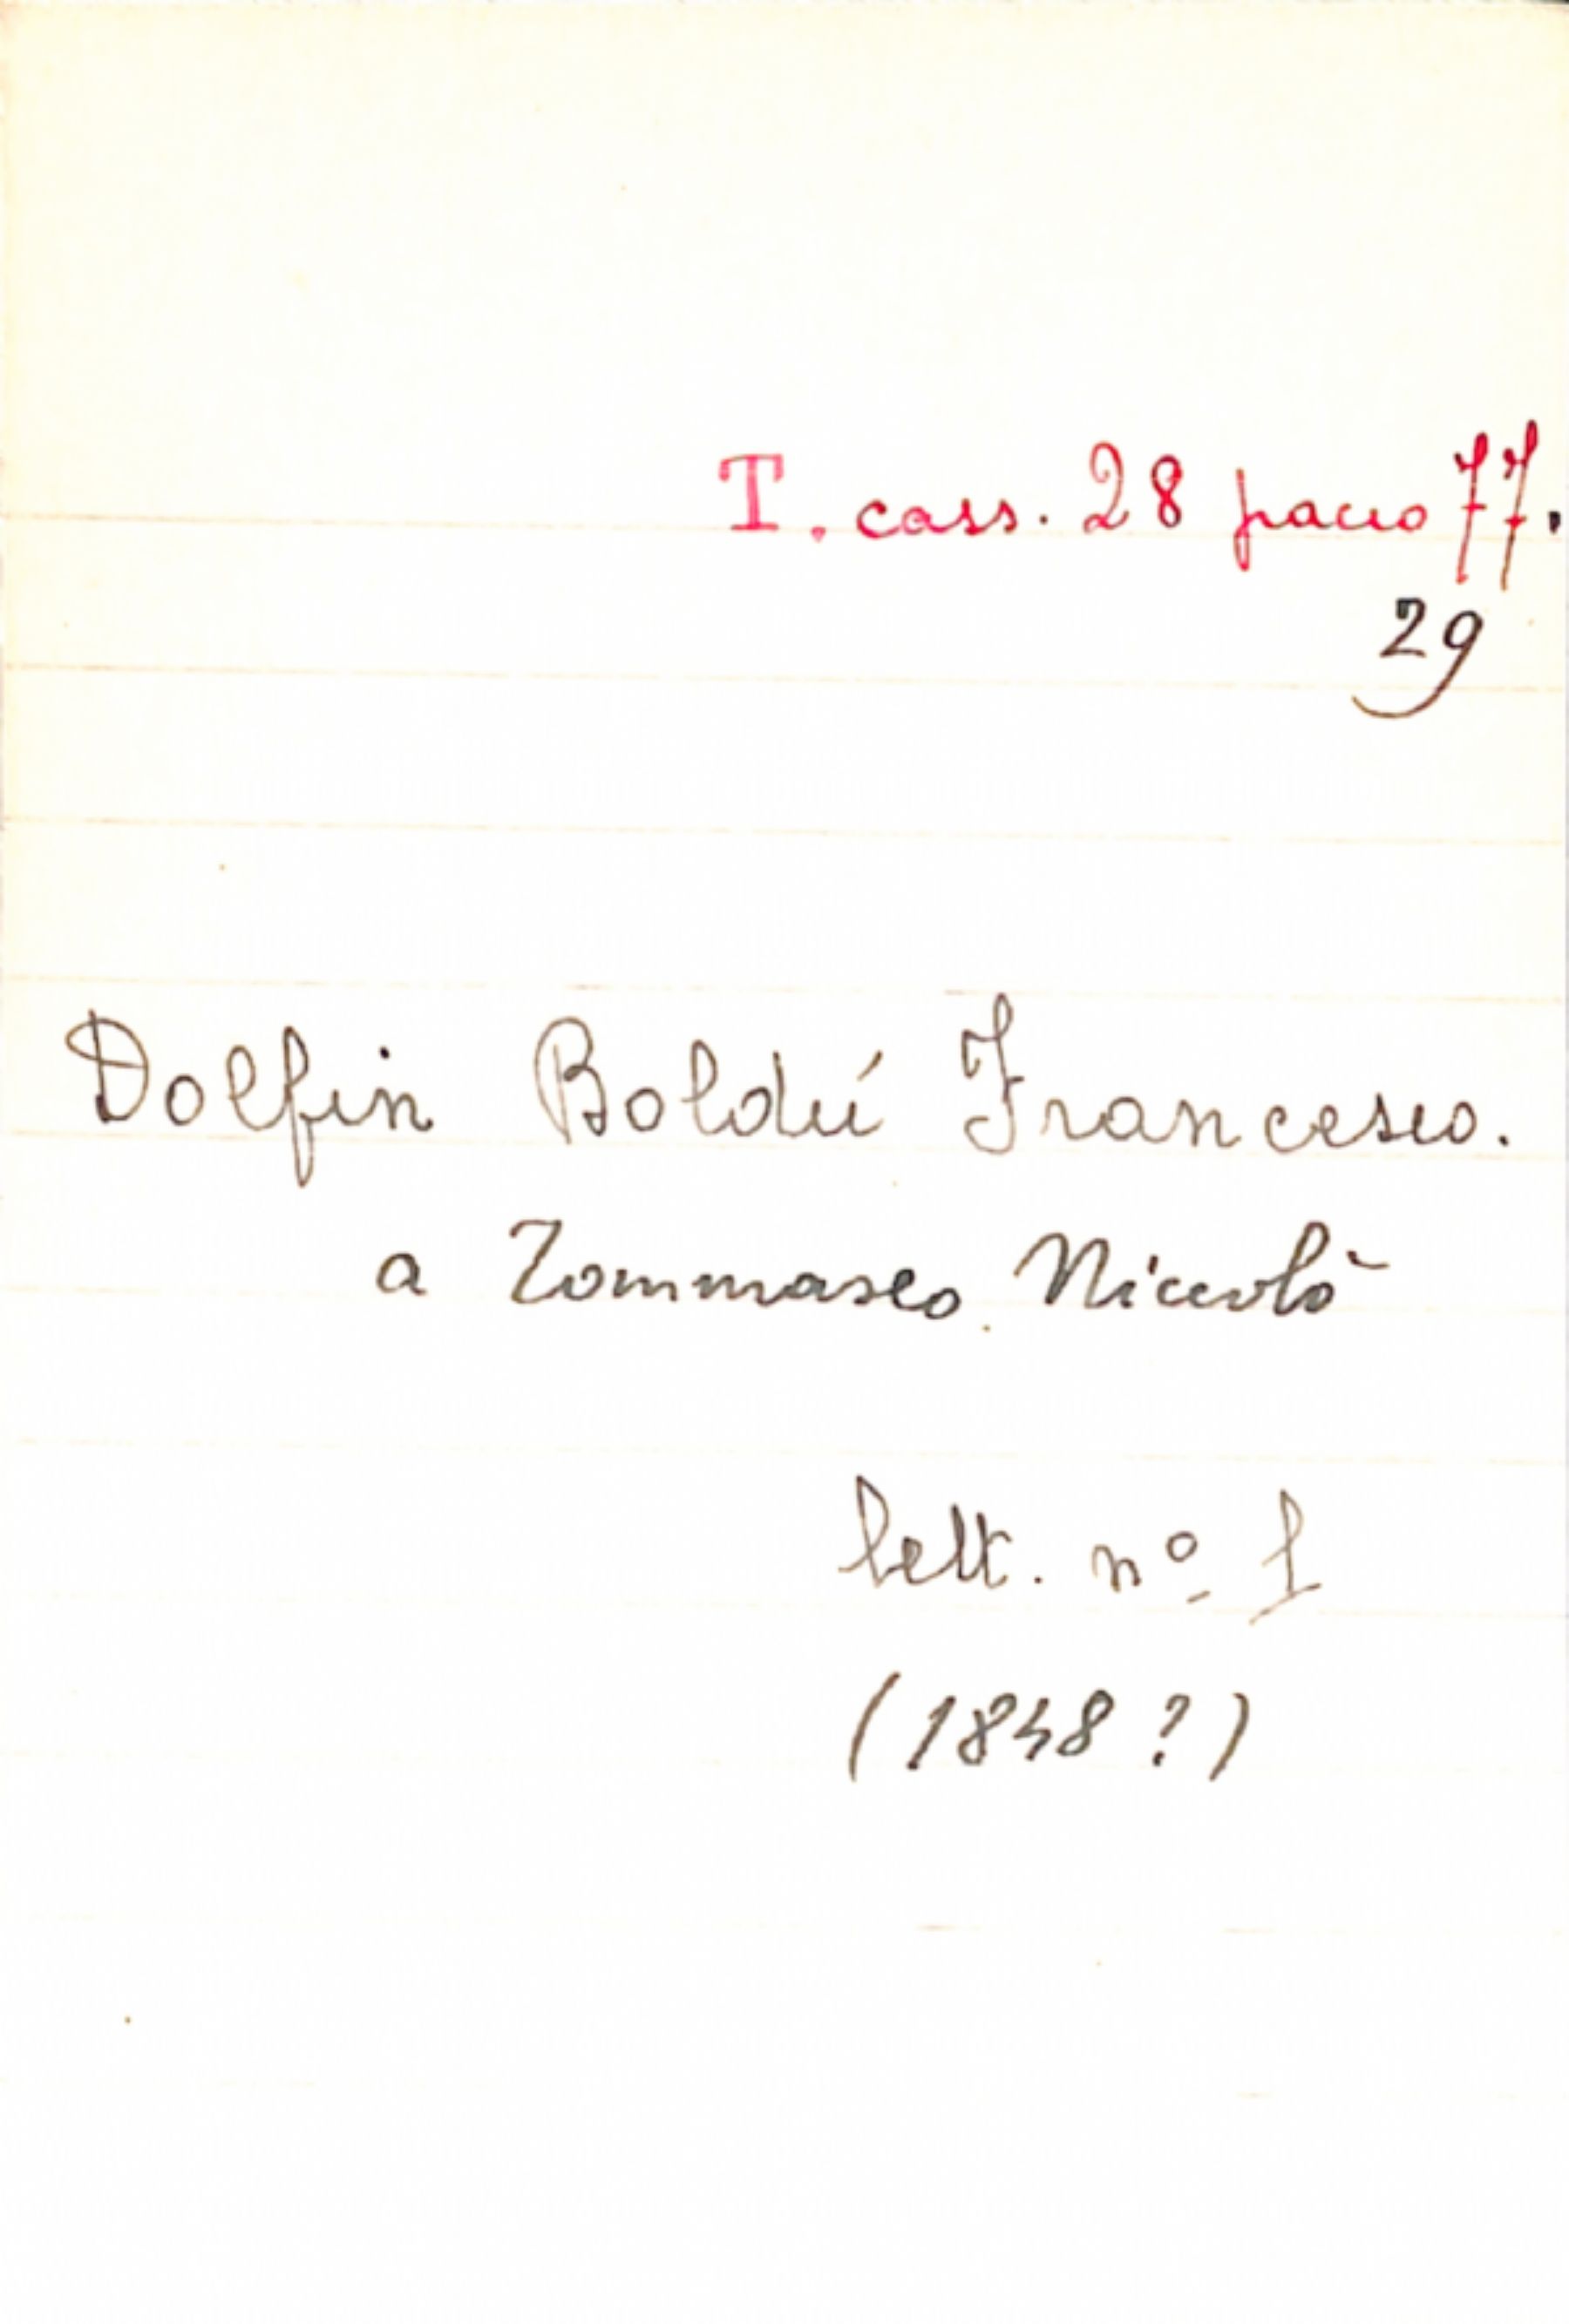 T. cass. 28 pacco 77.
29
Dolfin Boldú Francesco.
a Tommaseo Niccolò
lett. nº 1
(1848?)